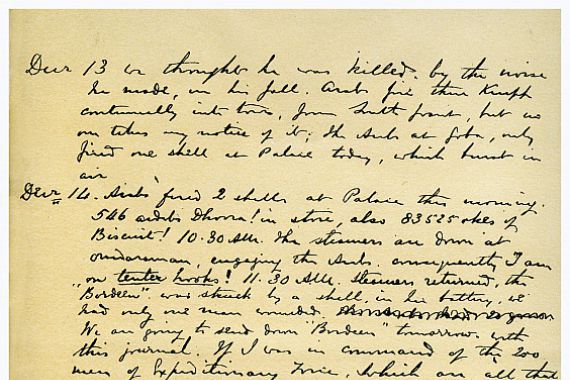 Decr 13 we thought he was killed, by the noise
he made, in his fall. Arabs fire their Krupps
continually into town, from South front, but no
one takes any notice of it; the Arabs at Goba, only
fired one shell at Palace today, which burst in
air
Decr 14. Arabs fired 2 shells at Palace this morning.
546 ardebs Dhoora! in store, also 83525 okes of
Biscuit! 10.30 AM. The steamers are down at
Omdurman, engaging the Arabs, consequently I am
"on tenter hooks! 11.30 AM. Steamers returned, the
"Bordeen" was struck by a shell, in her battery, we
had only one man wounded.
We are going to send down "Bordeen" tomorrow with
this journal. If I was in command of the 200
men of Expeditionary Force, which are all that